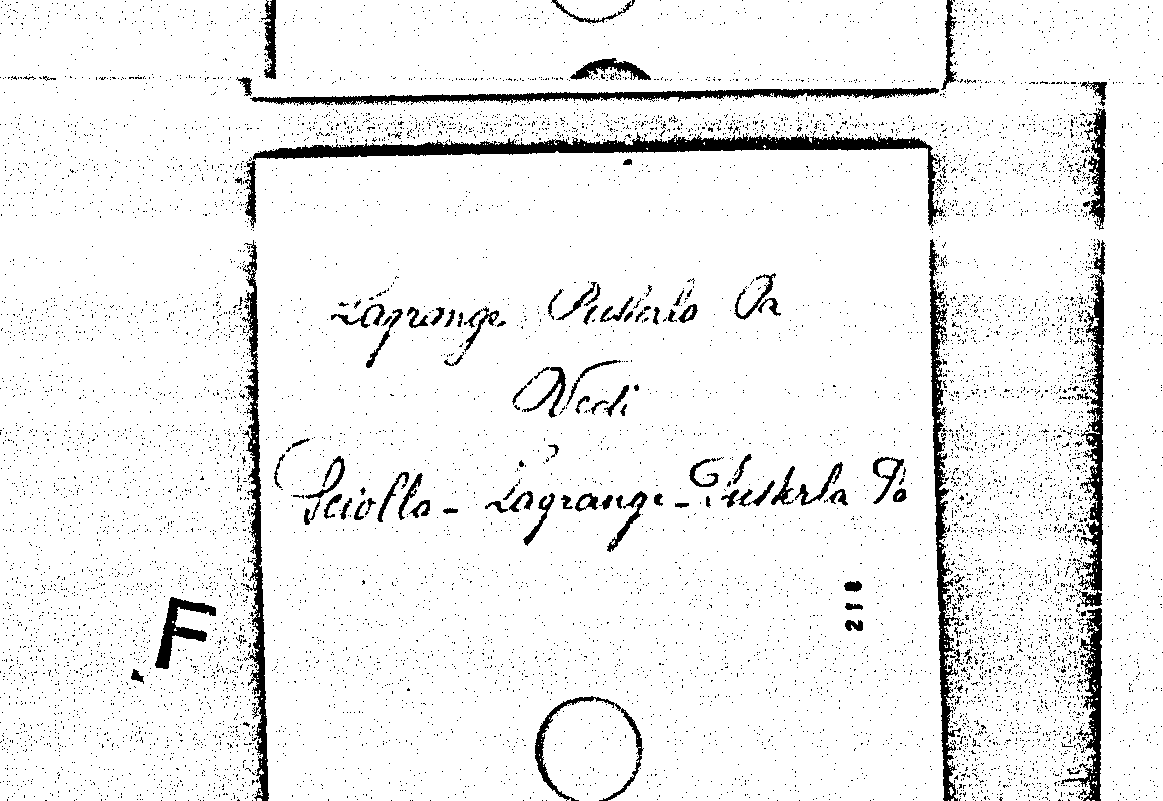 Lagrange Pusterla Pa
Vedi
Sciolla - Lagrange - Pusterla Pa
218
F